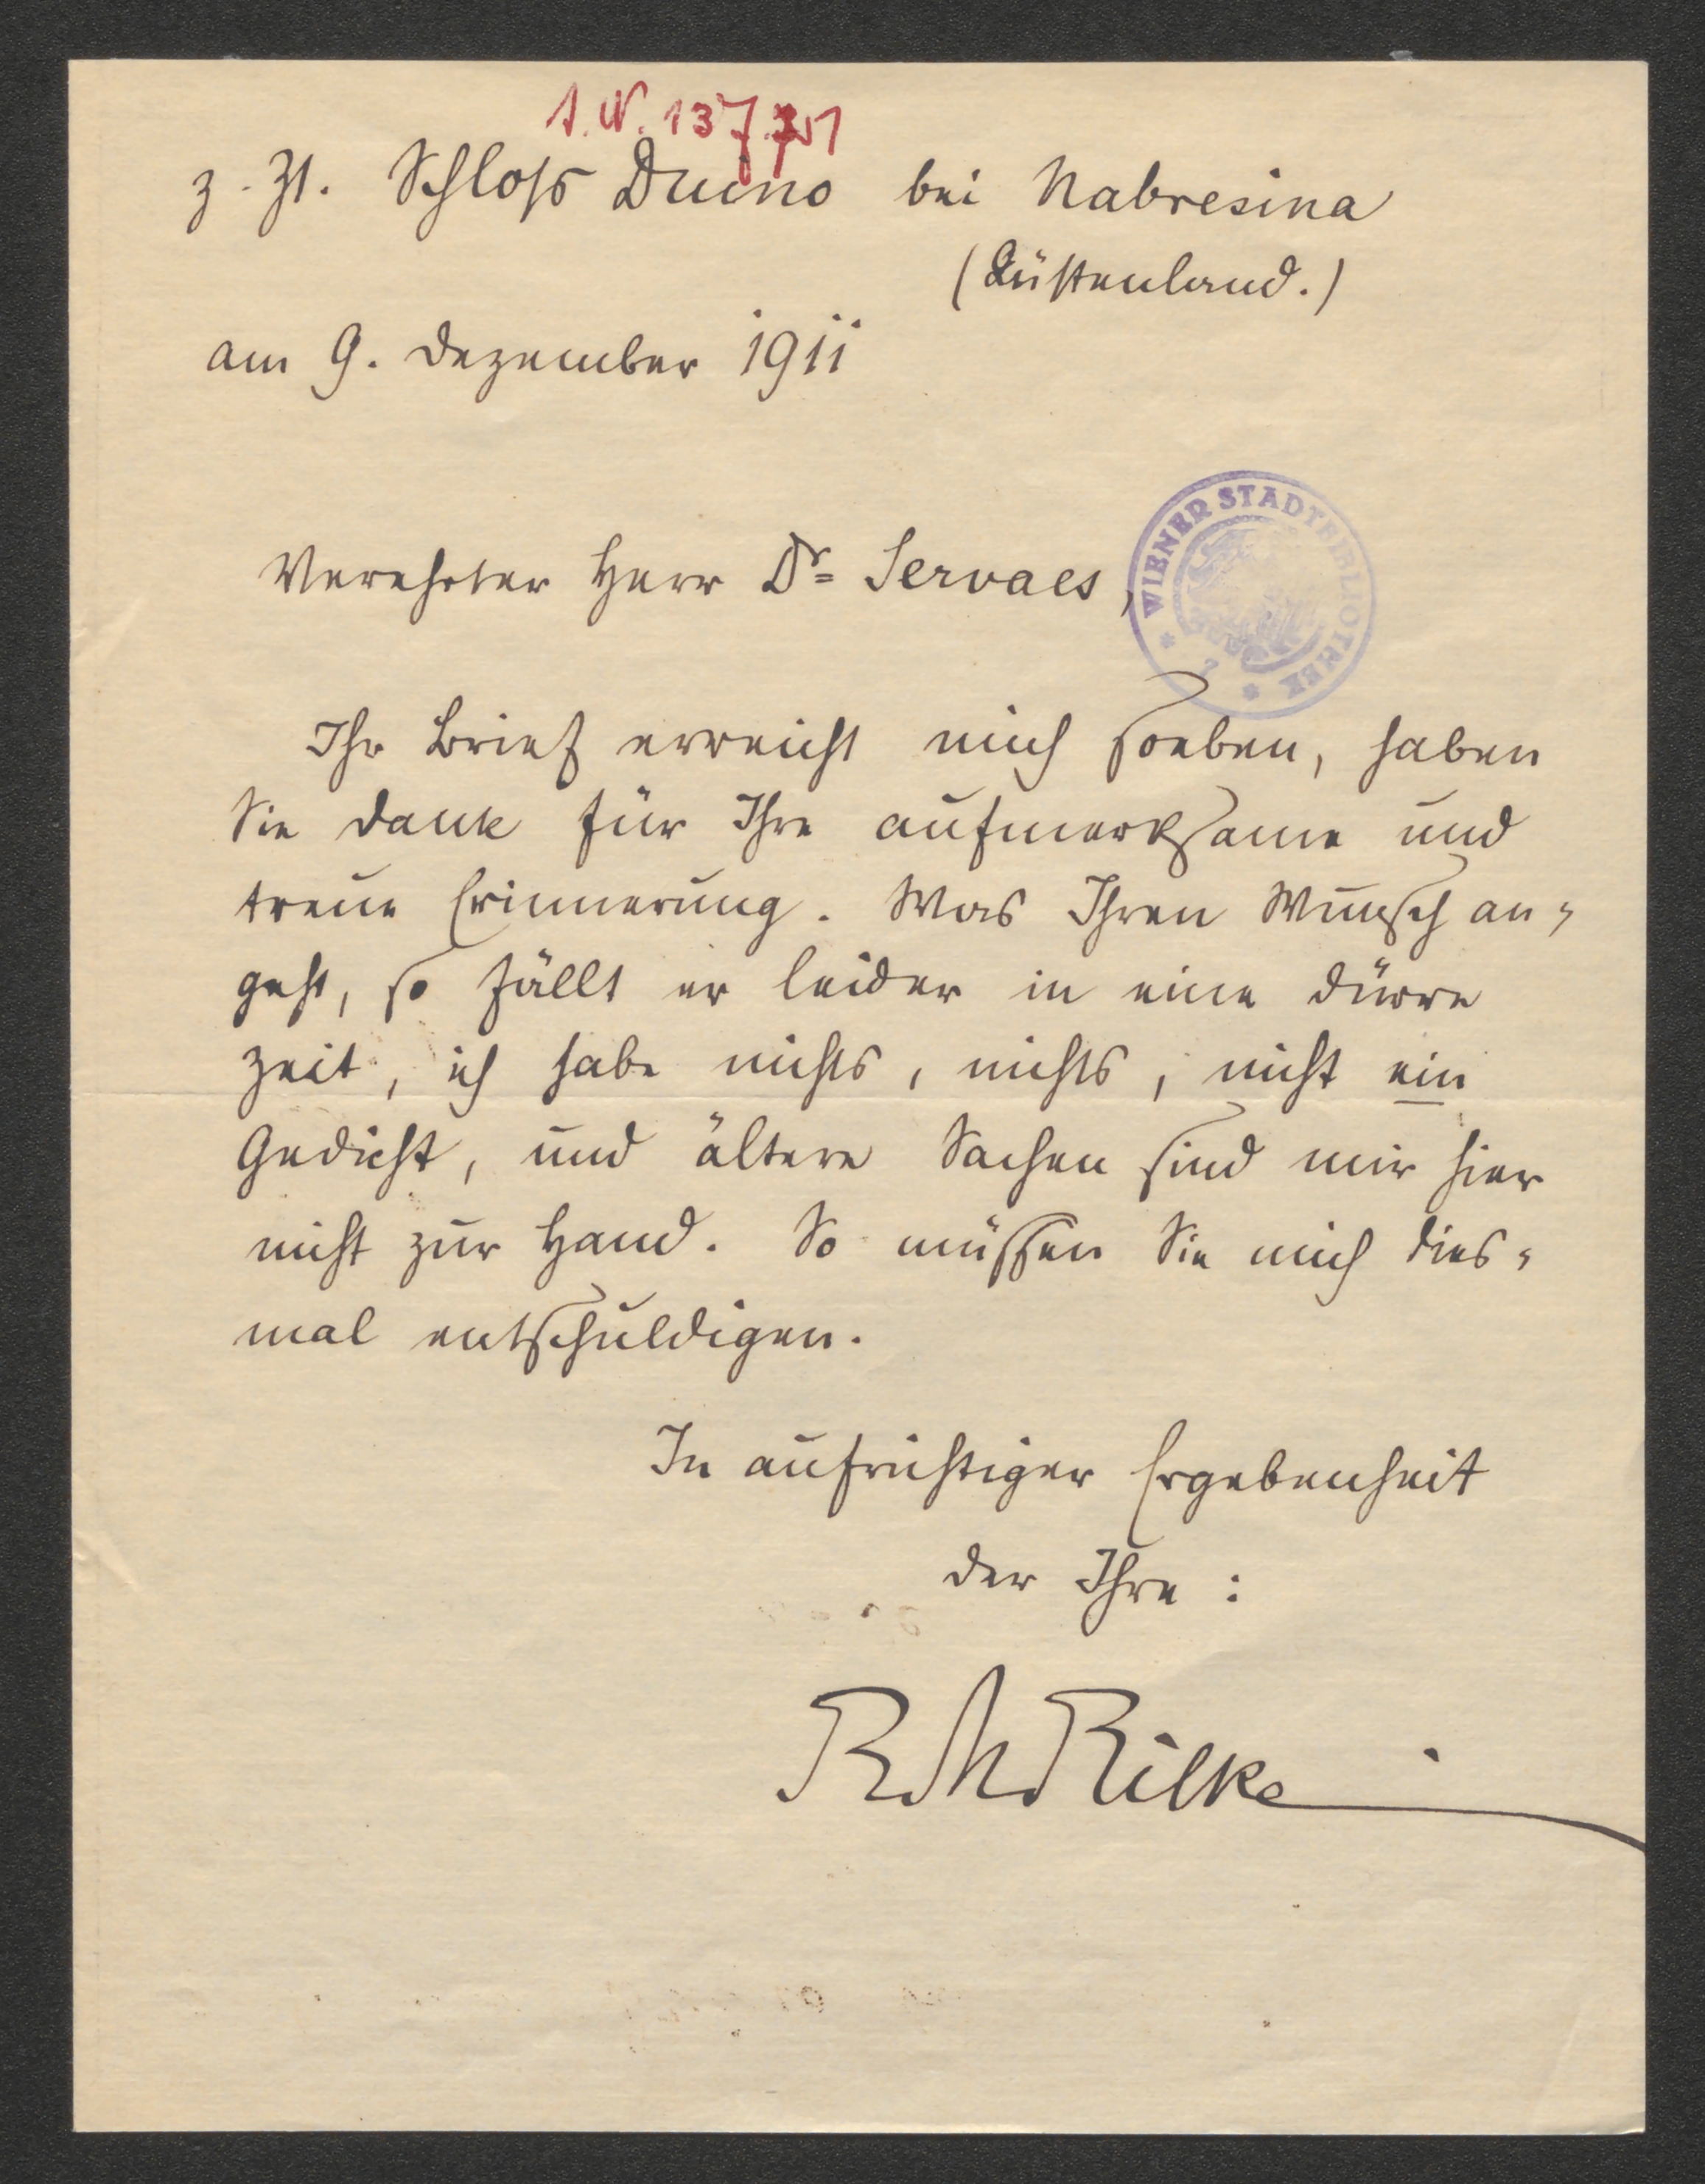 z. Zt. Schloß Duino bei Nabresina
(Küstenland.)
am 9. Dezember 1911
Verehrter Herr Dr. Servaes,
WIENER STADTBIBLIOTHEK
Ihr Brief erreicht mich soeben, haben
Sie Dank für Ihre aufmerksame und
treue Erinnerung. Was Ihren Wunsch an-
geht, so fällt er leider in eine dürre
Zeit, ich habe nichts, nichts, nicht ein
Gedicht, und ältere Sachen sind mir hier
nicht zur Hand. So müssen Sie mich dies-
mal entschuldigen.
In aufrichtiger Ergebenheit
der Ihre:
RMRilke